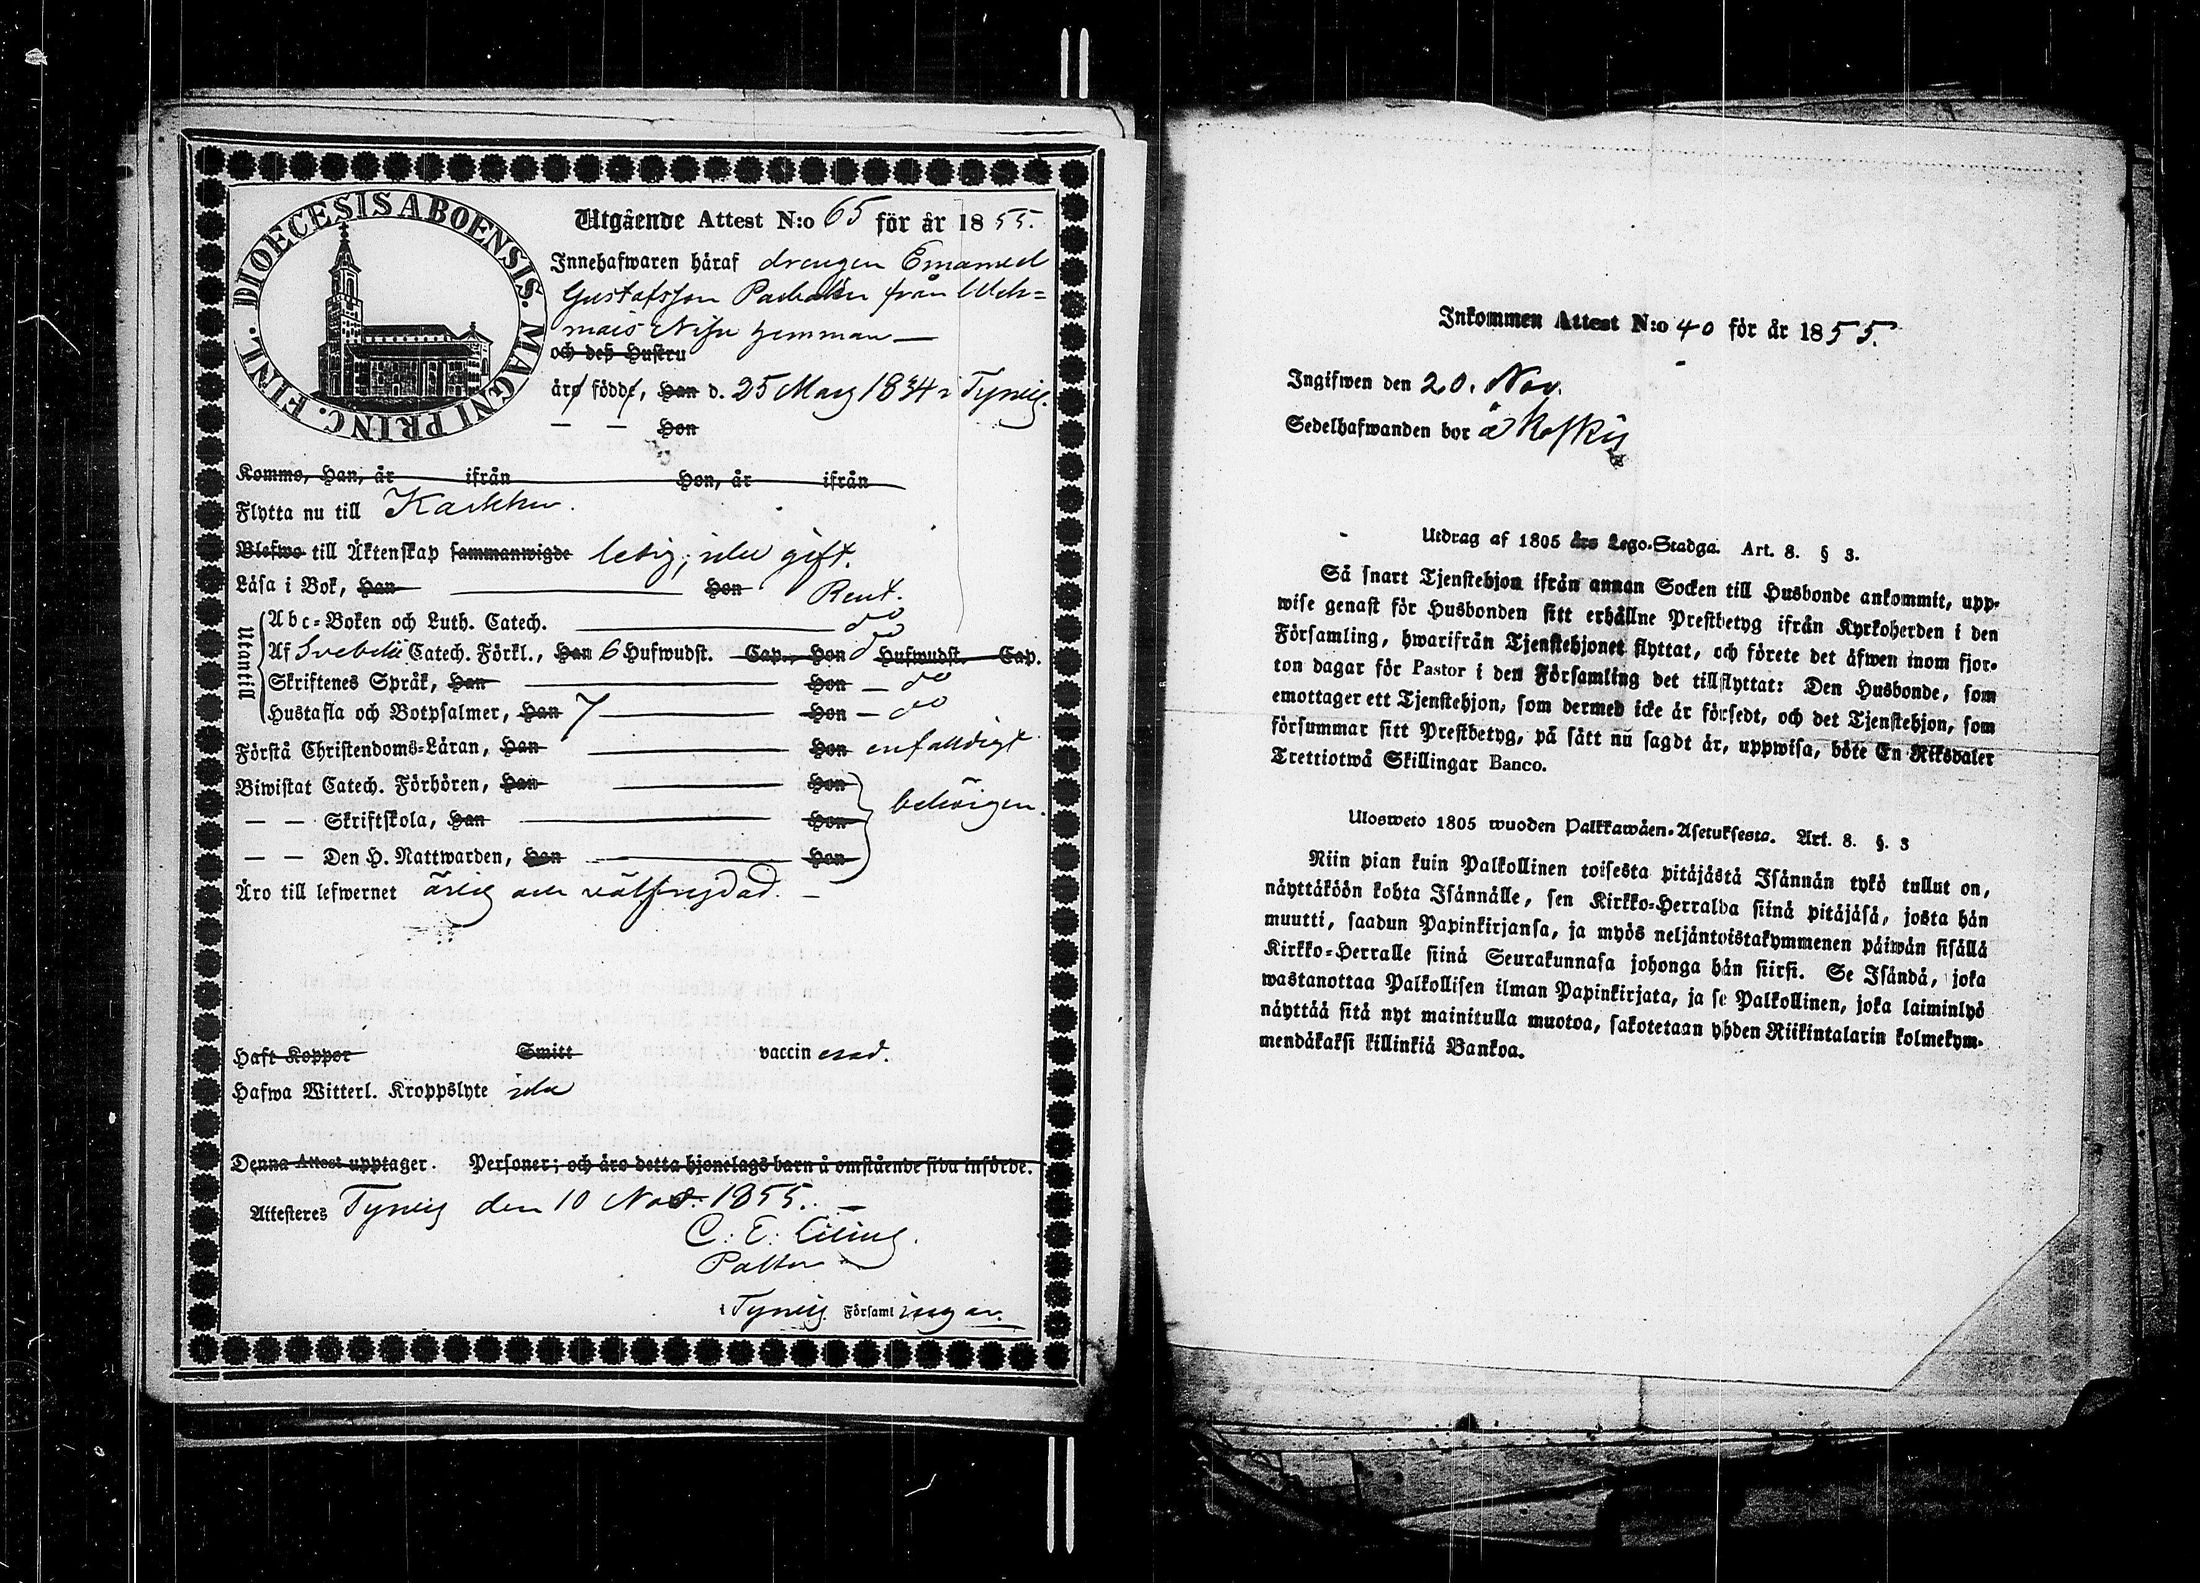 DIOECESIS ABOENSIS. MAGNI PRINC. FINL.
Utgående Attest N:o 65 för år 1855.
Innehafwaren häraf drengen Emanuel
Gustafsson från
Nisu hemman —
och deß Hustru
äro födde, Han d. 25 Mars 1834 i Tyrvis.
— — Hon
Kommo, Han, år ifrån Hon, år ifrån
Flytta nu till Karkku.
Blefwo till Äktenskap sammanwigde ledig, icke gift.
Läsa i Bok, Han Hon Rent.
Utantill
Abc-Boken och Luth. Catech. do
Af Svebelii Catech. Förkl., Han 6 Hufwudst. Cap., Hon do Hufwudst. Cap.
Skriftenes Språk, Han Hon — do
Hustafla och Botpsalmer, Han 7 Hon — do
Förstå Christendoms-Läran, Han Hon enfaldigt
Biwistat Catech. Förhören, Han Hon behörigen.
— — Skriftskola, Han Hon
— — Den H. Nattwarden, Han Hon
Äro till lefwernet ärlig och välfrejdad. —
Haft Koppor Smitt vaccinerad.
Hafwa Witterl. Kroppslyte icke
Denna Attest upptager. Personer; och äro detta hjonelags barn å omstående sida införde.
Attesteres Tyrvis den 10 Nov. 1855. —
C. E.
Pastor
i Tyrvis Församlingar.
Inkommen Attest N:o 40 för år 1855.
Ingifwen den 20. Nov.
Sedelhafwanden bor å
Utdrag af 1805 års Lego-Stadga. Art. 8. § 3.
Så snart Tjenstehjon ifrån annan Socken till Husbonde ankommit, upp-
wise genast för Husbonden sitt erhållne Prestbetyg ifrån Kyrkoherden i den
Församling, hwarifrån Tjenstehjonet flyttat, och förete det äfwen inom fjor-
ton dagar för Pastor i den Församling det tillflyttat: Den Husbonde, som
emottager ett Tjenstehjon, som dermed icke är försedt, och det Tjenstehjon, som
försummar sitt Prestbetyg, på sätt nu sagdt är, uppwisa, böte En Riksdaler
Trettiotwå Skillingar Banco.
Ulosweto 1805 wuoden Palkkawäen-Asetuksesta. Art. 8. §. 3
Niin pian kuin Palkollinen toisesta pitäjästä Isännän tykö tullut on,
näyttäköön kohta Isännälle, sen Kirkko-Herralda siinä pitäjäsä, josta hän
muutti, saadun Papinkirjansa, ja myös neljäntoistakymmenen päiwän sisällä
Kirkko-Herralle siinä Seurakunnasa johonga hän siirsi. Se Isändä, joka
wastanottaa Palkollisen ilman Papinkirjata, ja se Palkollinen, joka laiminlyö
näyttää sitä nyt mainitulla muotoa, sakotetaan yhden Riikintalarin kolmekym-
mendäkaksi killinkiä Bankoa.